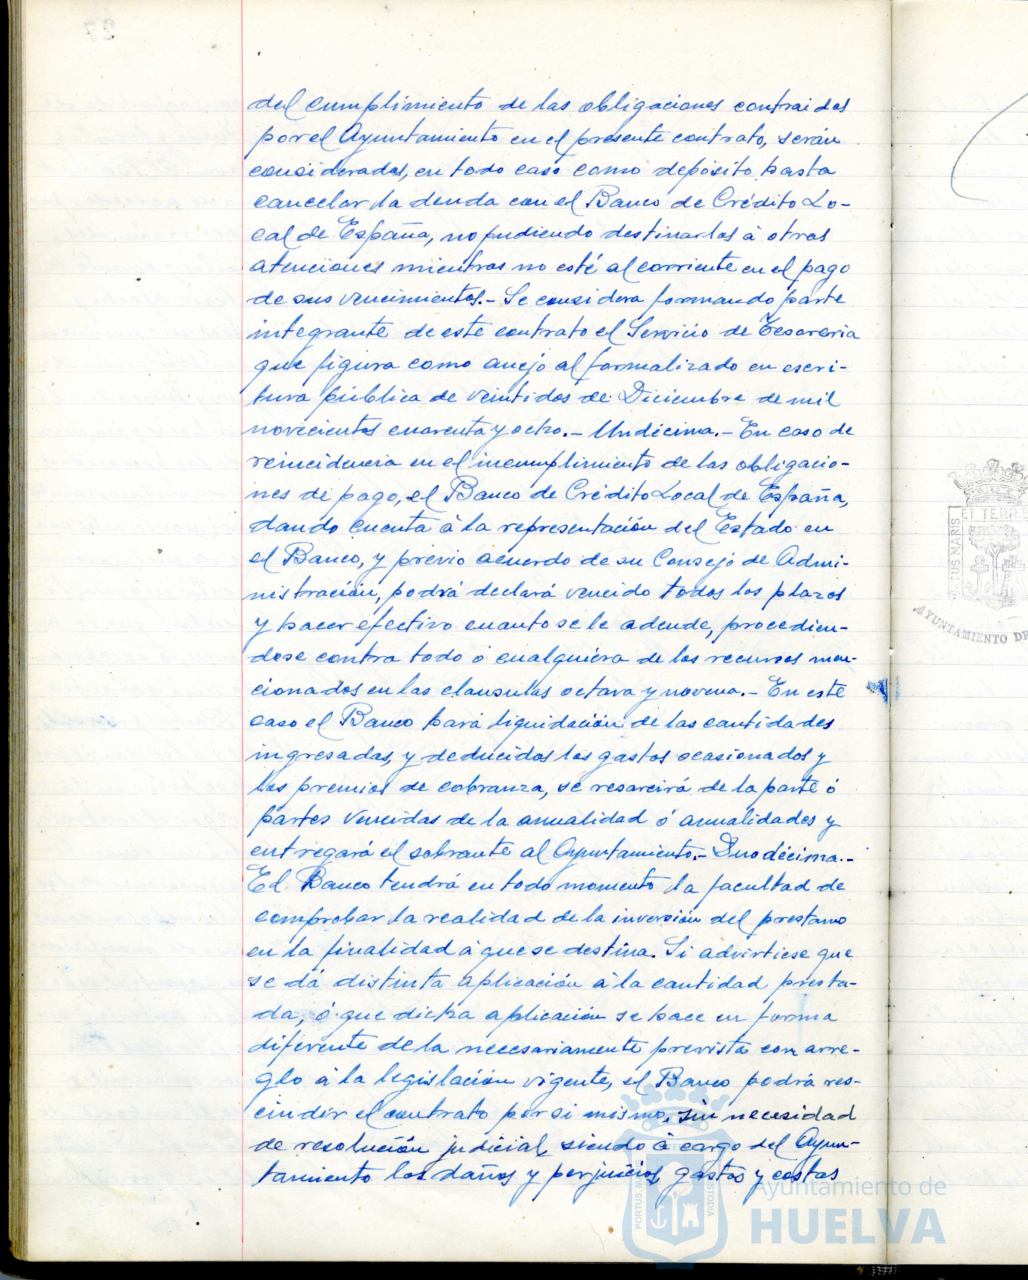 del cumplimiento de las obligaciones contraidos
por el Ayuntamiento en el presente contrato, serán
considerados, en todo caso como depósito hasta
cancelar la deuda con el Banco de Crédito Lo-
cal de España, no pudiendo destinarlos á otras
atenciones mientras no esté al corriente en el pago
de sus vencimientos.- Se considera formando parte
integrante de este contrato el Servicio de Tesoreria
que figura como anejo al formalizado en escri-
tura pública de veintidos de Diciembre de mil
novecientos cuarenta y ocho.- Undécima.- En caso de
reincidencia en el incumplimiento de las obligacio-
nes de pago, el Banco de Crédito Local de España,
dando cuenta á la representación del Estado en
el Banco, y previo acuerdo de su Consejo de Admi-
nistración, podrá declará vencido todos los plazos
y hacer efectivo cuanto se le adeude, procedien-
dose contra todo ó cualquiera de los recursos men-
cionados en las clausulas octava y novena.- En este
caso el Banco hará liquidación de las cantidades
ingresadas, y deducidos los gastos ocasionados y
los premios de cobranza, se resarcirá de la parte ó
partes vencidas de la anualidad ó anualidades y
entregará el sobrante al Ayuntamiento.- Duodécima.-
El Banco tendrá en todo momento la facultad de
comprobar la realidad de la inversión del prestamo
en la finalidad á que se destina. Si advirtiese que
se dá distinta aplicación á la cantidad presta-
da, ó que dicha aplicación se hace en forma
diferente de la necesariamente prevista con arre-
glo á la legislación vigente, el Banco podrá res-
cindir el contrato por si mismo, sin necesidad
de resolución judicial, siendo á cargo del Ayun-
tamiento los daños y perjuicios, gastos y costas
PORTUS MARIS ET TERRE
AYUNTAMIENTO DE
Ayuntamiento de
HUELVA